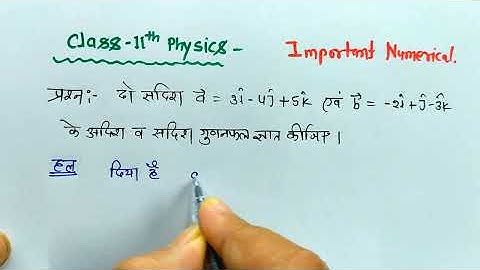 Class-11th Physics - Important Numerical.
प्रश्न:- दो सदिश a⃗ = 3î - 4ĵ + 5k̂ एवं b⃗ = -2î + ĵ - 3k̂
के अदिश व सदिश गुणनफल ज्ञात कीजिए।
हल दिया है